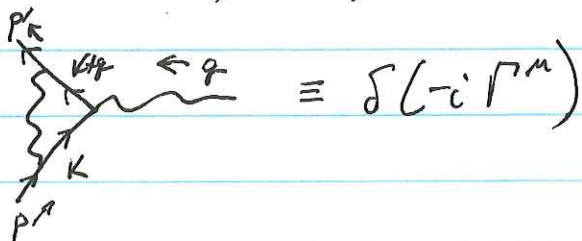 p'
k+q
← q
≡ δ(-i Γ^μ)
k
p